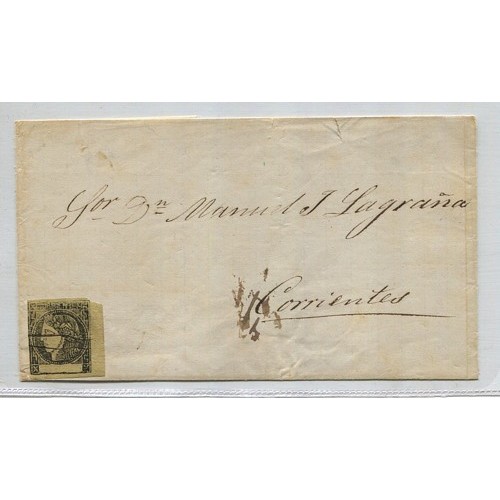 Sor. Dn. Manuel J Lagraña
Corrientes